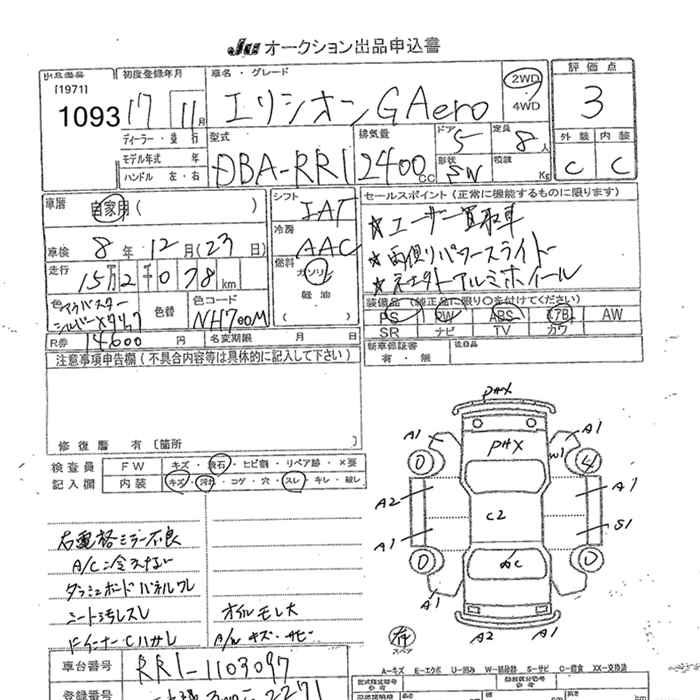 Ju オークション出品申込書
出品番号 [1971] 1093
初度登録年月 17 11月
車名・グレード エリシオン GAero
2WD ・ 4WD
評価点 3
外装 内装
C C
ディーラー・並行
モデル年式 年
ハンドル 左・右
型式 DBA-RR1
排気量 2400 CC
ドア 5 定員 8人
形状 SW 積載 Kg
車歴 自家用 ( )
シフト IAT
冷房 AAC
燃料 ガソリン
軽油
( )
車検 8年 12月 (23日)
走行 15万2千078 km
色 アラバスター
シルバーメタリック
色替
色コード NH700M
R券 14600 円 名変期限 月 日
セールスポイント (正常に機能するものに限ります)
★ユーザー買取車
★両側パワースライドドー
★社外アルミホイール
装備品 (純正品に限り○を付けてください)
PS PW ABS エアB AW
SR ナビ TV カワ
新車保証書 有・無 後日品
注意事項申告欄 (不具合内容等は具体的に記入して下さい)
修復歴 有 [箇所 ]
検査員 FW キズ・飛石・ヒビ割・リペア跡・×要
記入欄 内装 キズ・汚れ・コゲ・穴・スレ・キレ・破レ
右電格ミラー不良
A/C冷えない
ダッシュボードパネルワレ
シート汚レスレ
オイルモレ大
A/W キズ・サビ
PHX
A1 A1
PHX
W1
0 4
A2 A1
C2
A1 S1
0 0
AC
A1 A1
A2
有 スペア
A-キズ E-エクボ U-凹み W-補修跡 S-サビ C-腐食 XX-交換済
車台番号 RR1-1103097
登録番号 2271
型式指定番号
類別区分番号